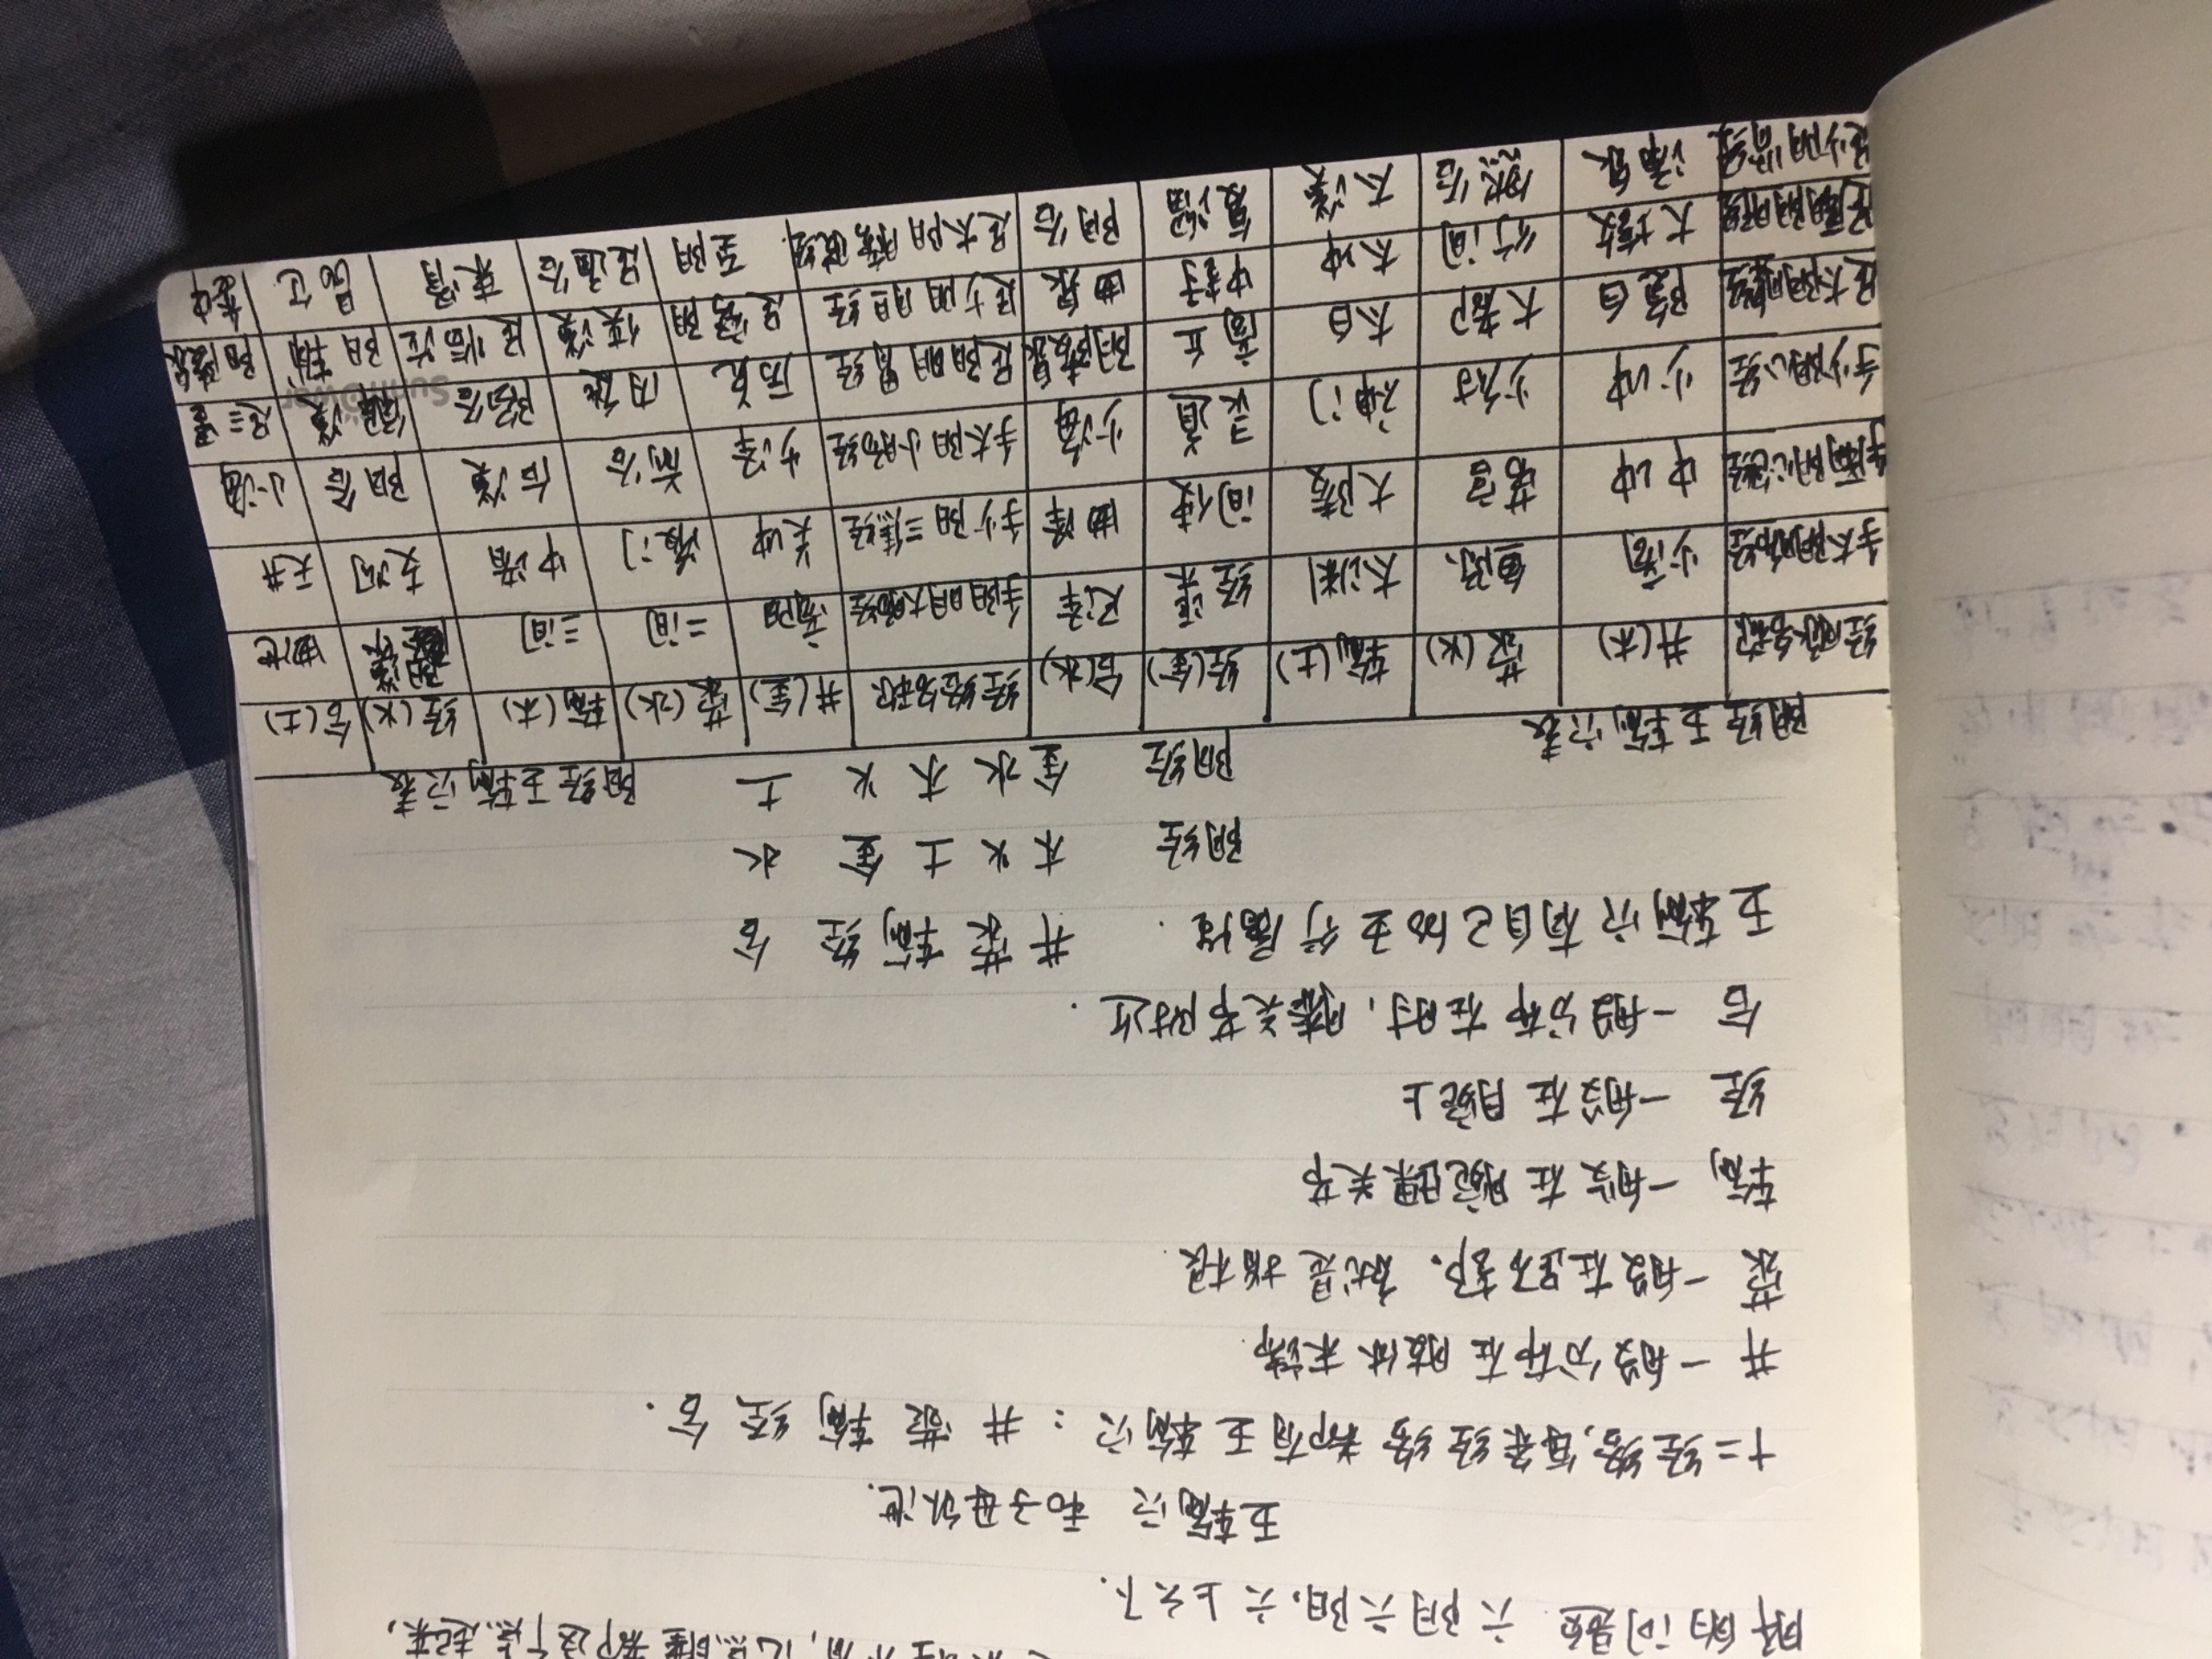 脾的问题 六阴六阳,六上六下.
五输穴 和子母补泄.
十二经络,每条经络都有五输穴:井荥输经合.
井 一般分布在肢体末端.
荥 一般在掌部、就是指根.
输 一般在腕踝关节
经 一般在腕上
合 一般分布在肘,膝关节附近.
五输穴有自己的五行属性. 井荥输经合
阴经 木火土金水
阳经 金水木火土
阴经五输穴表 阳经五输穴表
经脉名称 井(木) 荥(火) 输(土) 经(金) 合(水) 经络名称 井(金) 荥(水) 输(木) 经(火) 合(土)
手太阴肺经 少商 鱼际 太渊 经渠 尺泽 手阳明大肠经 商阳 二间 三间 阳溪 曲池
手厥阴心包经 中冲 劳宫 大陵 间使 曲泽 手少阳三焦经 关冲 液门 中渚 支沟 天井
手少阴心经 少冲 少府 神门 灵道 少海 手太阳小肠经 少泽 前谷 后溪 阳谷 小海
足太阴脾经 隐白 大都 太白 商丘 阴陵泉 足阳明胃经 厉兑 内庭 陷谷 解溪 足三里
足厥阴肝经 大敦 行间 太冲 中封 曲泉 足少阳胆经 足窍阴 侠溪 足临泣 阳辅 阳陵泉
足少阴肾经 涌泉 然谷 太溪 复溜 阴谷 足太阳膀胱经 至阴 足通谷 束骨 昆仑 委中